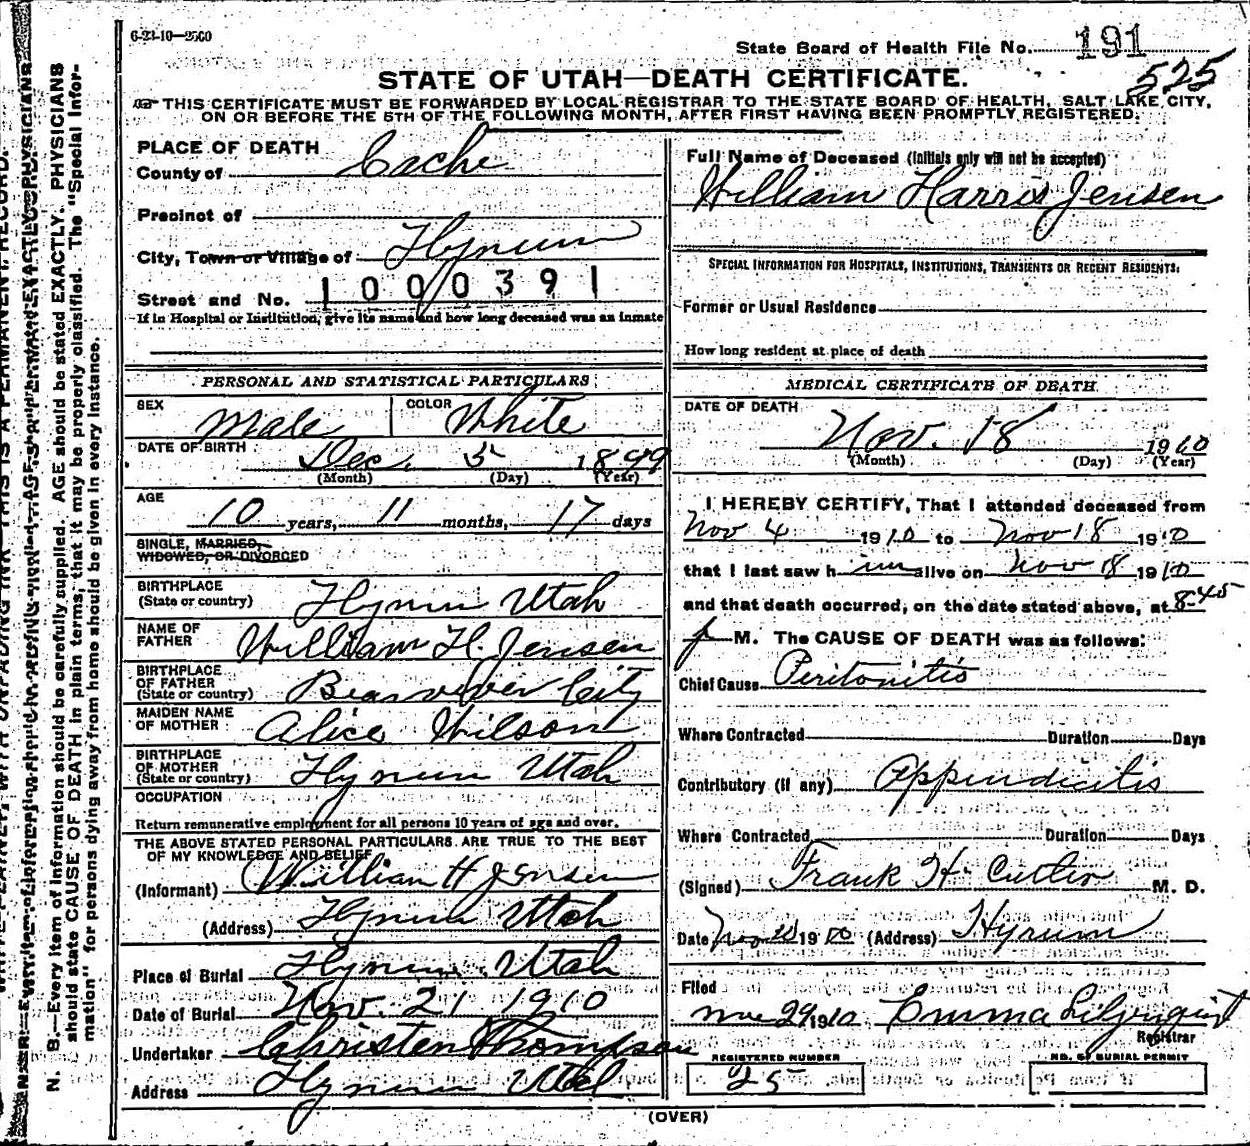 6-23-10—2500
State Board of Health File No. 191
525
STATE OF UTAH—DEATH CERTIFICATE.
THIS CERTIFICATE MUST BE FORWARDED BY LOCAL REGISTRAR TO THE STATE BOARD OF HEALTH, SALT LAKE CITY,
ON OR BEFORE THE 5TH OF THE FOLLOWING MONTH, AFTER FIRST HAVING BEEN PROMPTLY REGISTERED.
PLACE OF DEATH
County of Cache
Precinct of
City, Town or Village of Hyrum
1000391
Street and No.
If in Hospital or Institution, give its name and how long deceased was an inmate
PERSONAL AND STATISTICAL PARTICULARS
SEX Male COLOR White
DATE OF BIRTH Dec. 5 1899
(Month) (Day) (Year)
AGE
10 years, 11 months, 17 days
SINGLE, MARRIED,
WIDOWED, OR DIVORCED
BIRTHPLACE
(State or country) Hyrum Utah
NAME OF
FATHER William H. Jensen
BIRTHPLACE
OF FATHER
(State or country) City
MAIDEN NAME
OF MOTHER Alice Wilson
BIRTHPLACE
OF MOTHER
(State or country) Hyrum Utah
OCCUPATION
Return remunerative employment for all persons 10 years of age and over.
THE ABOVE STATED PERSONAL PARTICULARS ARE TRUE TO THE BEST
OF MY KNOWLEDGE AND BELIEF
(Informant) William H Jensen
(Address) Hyrum Utah
Place of Burial Hyrum, Utah
Date of Burial Nov. 21 1910
Undertaker Christen Thompson
Address Hyrum Utah
Full Name of Deceased (Initials only will not be accepted)
William Harris Jensen
SPECIAL INFORMATION FOR HOSPITALS, INSTITUTIONS, TRANSIENTS OR RECENT RESIDENTS:
Former or Usual Residence
How long resident at place of death
MEDICAL CERTIFICATE OF DEATH
DATE OF DEATH
Nov. 18 1910
(Month) (Day) (Year)
I HEREBY CERTIFY, That I attended deceased from
Nov 4 1910 to Nov 18 1910
that I last saw h im alive on Nov 18 1910
and that death occurred, on the date stated above, at 8-45
p M. The CAUSE OF DEATH was as follows:
Chief Cause Peritonitis
Where Contracted Duration Days
Contributory (if any) Appendicitis
Where Contracted Duration Days
(Signed) Frank H. Cutler M. D.
Date Nov 1910 (Address) Hyrum
Filed
Nov 29 1910 Emma Liljenquist
Registrar
REGISTERED NUMBER
25
NO. OF BURIAL PERMIT
(OVER)
N. B.—Every item of information should be carefully supplied. AGE should be stated EXACTLY. PHYSICIANS
should state CAUSE OF DEATH in plain terms, that it may be properly classified. The "Special Infor-
mation" for persons dying away from home should be given in every instance.